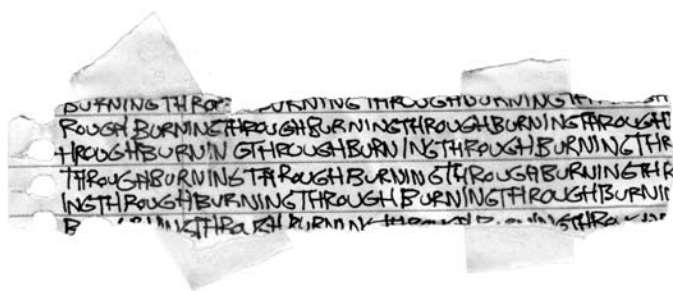 BURNINGTHRO BURNINGTHROUGHBURNINGTH
ROUGHBURNINGTHROUGHBURNINGTHROUGHBURNINGTHROUGHB
THROUGHBURNINGTHROUGHBURNINGTHROUGHBURNINGTHR
THROUGHBURNINGTHROUGHBURNINGTHROUGHBURNINGTHR
INGTHROUGHBURNINGTHROUGHBURNINGTHROUGHBURNIN
B NINGTHROUGHBURNIN THROUGH BURNINGTHROU